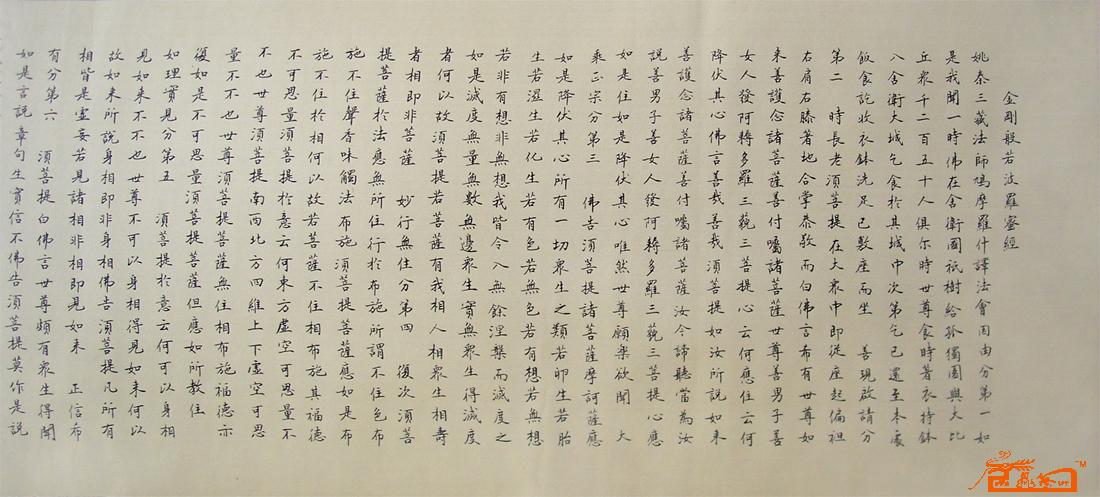 金剛般若波羅蜜經
姚秦三藏法師鳩摩羅什譯法會因由分第一如
是我聞一時佛在舍衛國祇樹給孤獨園與大比
丘眾千二百五十人俱尔時世尊食時著衣持鉢
入舍衛大城乞食於其城中次第乞已還至本處
飯食訖收衣鉢洗足已敷座而坐 善現啟請分
第二 時長老須菩提在大衆中即從座起偏袒
右肩右膝著地合掌恭敬而白佛言希有世尊如
来善護念諸菩薩善付囑諸菩薩世尊善男子善
女人發阿耨多羅三藐三菩提心云何應住云何
降伏其心佛言善哉善哉須菩提如汝所說如来
善護念諸菩薩善付囑諸菩薩汝今諦聽當為汝
說善男子善女人發阿耨多羅三藐三菩提心應
如是住如是降伏其心唯然世尊願樂欲聞 大
乘正宗分第三 佛告須菩提諸菩薩摩訶薩應
如是降伏其心所有一切衆生之類若卵生若胎
生若濕生若化生若有色若無色若有想若無想
若非有想非無想我皆令入無餘涅槃而滅度之
如是滅度無量無數無邊衆生實無衆生得滅度
者何以故須菩提若菩薩有我相人相衆生相壽
者相即非菩薩 妙行無住分第四 復次須菩
提菩薩於法應無所住行於布施所謂不住色布
施不住聲香味觸法布施須菩提菩薩應如是布
施不住於相何以故若菩薩不住相布施其福德
不可思量須菩提於意云何東方虛空可思量不
不也世尊須菩提南西北方四維上下虛空可思
量不不也世尊須菩提菩薩無住相布施福德亦
復如是不可思量須菩提菩薩但應如所教住
如理實見分第五 須菩提於意云何可以身相
見如来不不也世尊不可以身相得見如来何以
故如来所說身相即非身相佛告須菩提凡所有
相皆是虛妄若見諸相非相即見如来 正信希
有分第六 須菩提白佛言世尊頗有衆生得聞
如是言說章句生實信不佛告須菩提莫作是說